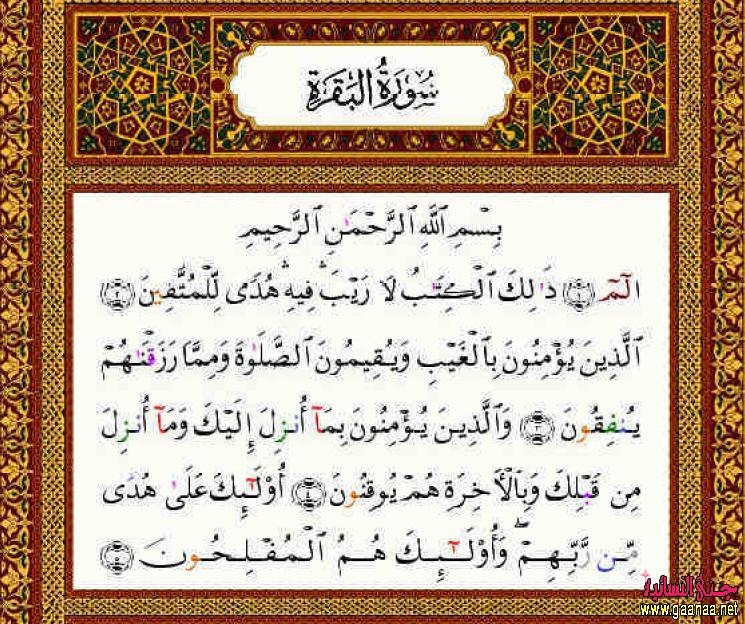 سُورَةُ الْبَقَرَةِ
بِسْمِ ٱللَّهِ ٱلرَّحْمَـٰنِ ٱلرَّحِيمِ
الٓمٓ ١ ذَٰلِكَ ٱلْكِتَـٰبُ لَا رَيْبَ ۛ فِيهِ ۛ هُدًى لِّلْمُتَّقِينَ ٢
ٱلَّذِينَ يُؤْمِنُونَ بِٱلْغَيْبِ وَيُقِيمُونَ ٱلصَّلَوٰةَ وَمِمَّا رَزَقْنَـٰهُمْ
يُنفِقُونَ ٣ وَٱلَّذِينَ يُؤْمِنُونَ بِمَآ أُنزِلَ إِلَيْكَ وَمَآ أُنزِلَ
مِن قَبْلِكَ وَبِٱلْـَٔاخِرَةِ هُمْ يُوقِنُونَ ٤ أُو۟لَـٰٓئِكَ عَلَىٰ هُدًى
مِّن رَّبِّهِمْ ۖ وَأُو۟لَـٰٓئِكَ هُمُ ٱلْمُفْلِحُونَ ٥
www.gaanaa.net